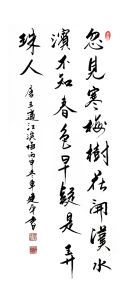 忽见寒梅树花开漢水
濱不知春色早疑是弄
珠人
唐王適江濱梅丙申年草建平書